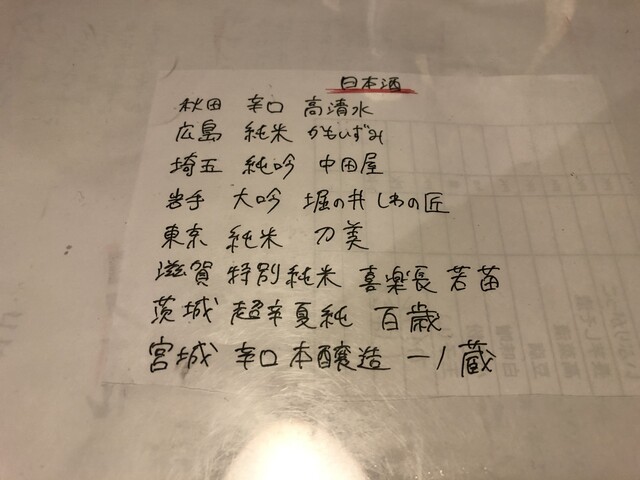 日本酒
秋田 辛口 高清水
広島 純米 かもいずみ
埼玉 純吟 中田屋
岩手 大吟 堀の井 しわの匠
東京 純米 刀美
滋賀 特別純米 喜楽長 若苗
茨城 超辛夏純 百歳
宮城 辛口 本醸造 一ノ蔵